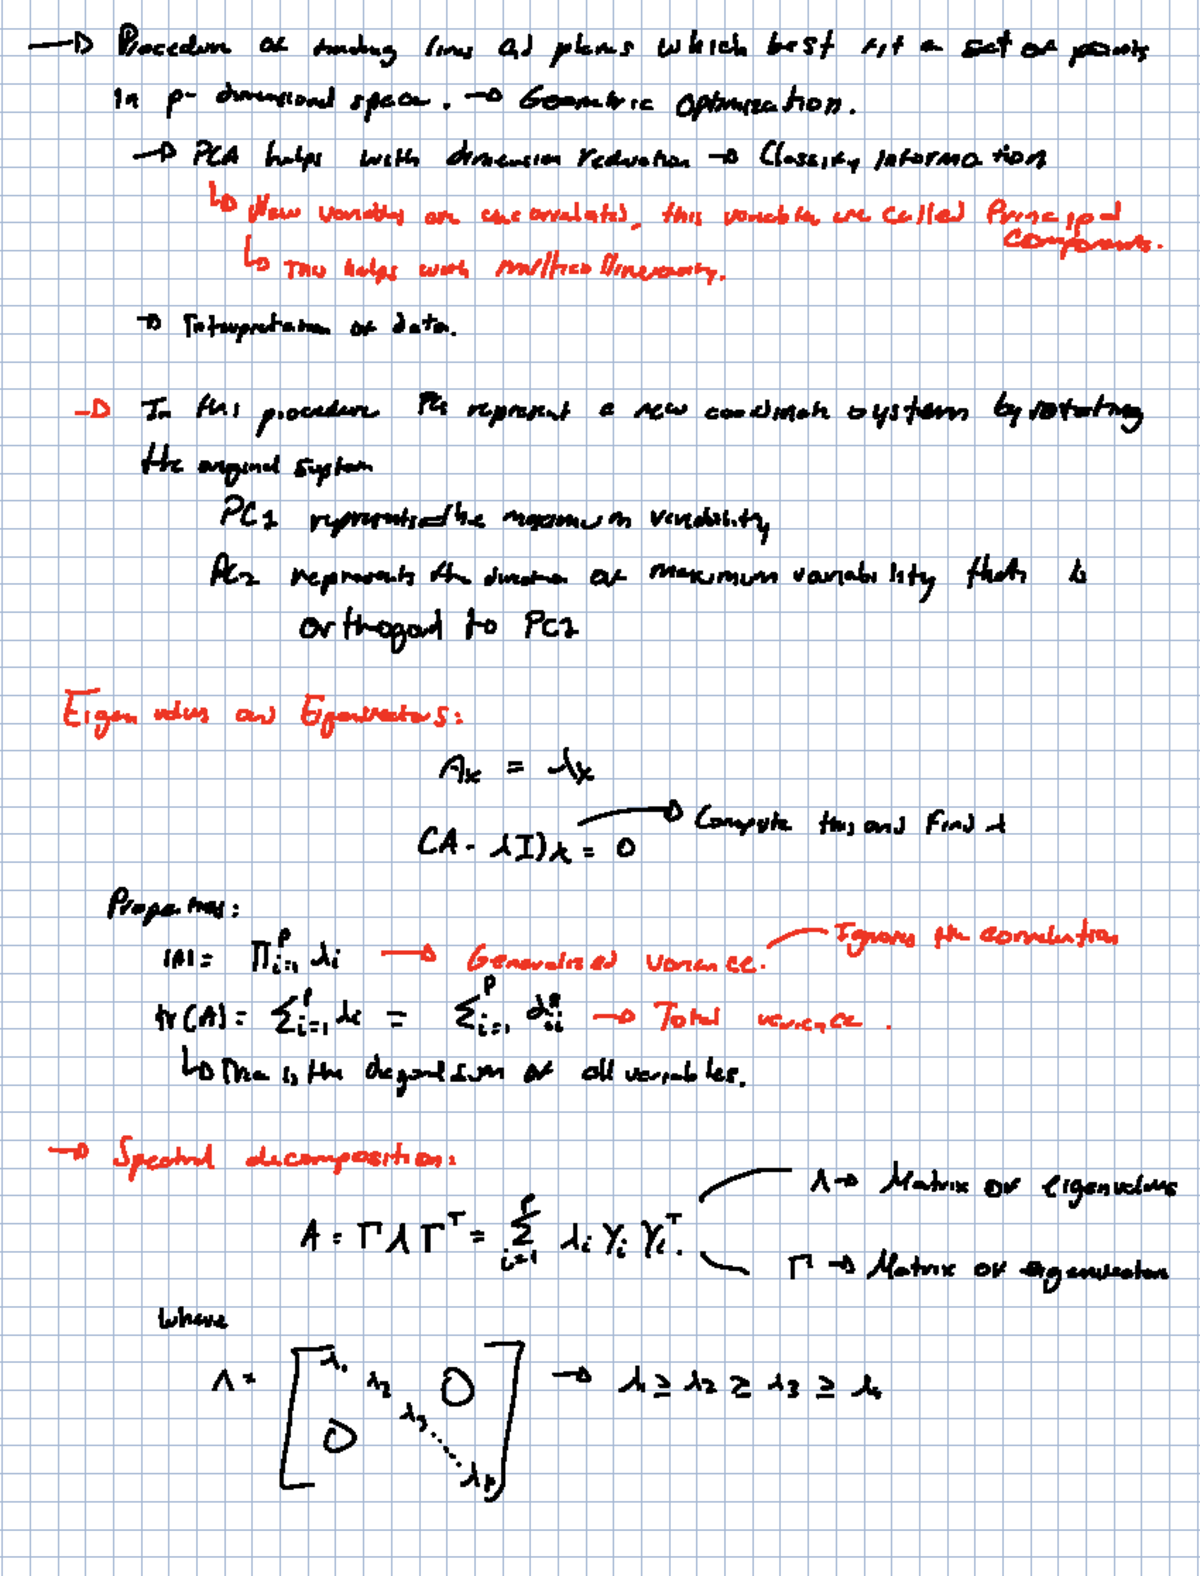 → Procedure of finding lines and planes which best fit a set of points
in p- dimensional space. → Geometric optimization.
→ PCA helps with dimension reduction → Classify information
↳ New variables are uncorrelated, this variables are called Principal
Components.
↳ This helps with multicollinearity.
→ Interpretation of data.
→ In this procedure PCs represent a new coordinate system by rotating
the original system
PC1 represents the maximum variability
PC2 represents the direction of maximum variability that is
orthogonal to PC1
Eigen values and Eigenvectors:
Ax = λx
(A - λI)x = 0 → Compute this and find λ
Properties:
|A| = Π_{i=1}^{p} λi → Generalized variance. Ignores the correlation
tr(A) = Σ_{i=1}^{p} λi = Σ_{i=1}^{p} → Total variance.
↳ This is the diagonal sum of all variables.
→ Spectral decomposition:
Λ → Matrix of eigenvalues
A = ΓΛΓ^T = Σ_{i=1}^{p} λi γi γi^T.
Γ → Matrix of eigenvectors
where
Λ = [λ1 λ2 λ3 ... λp 0 0] → λ1 ≥ λ2 ≥ λ3 ≥